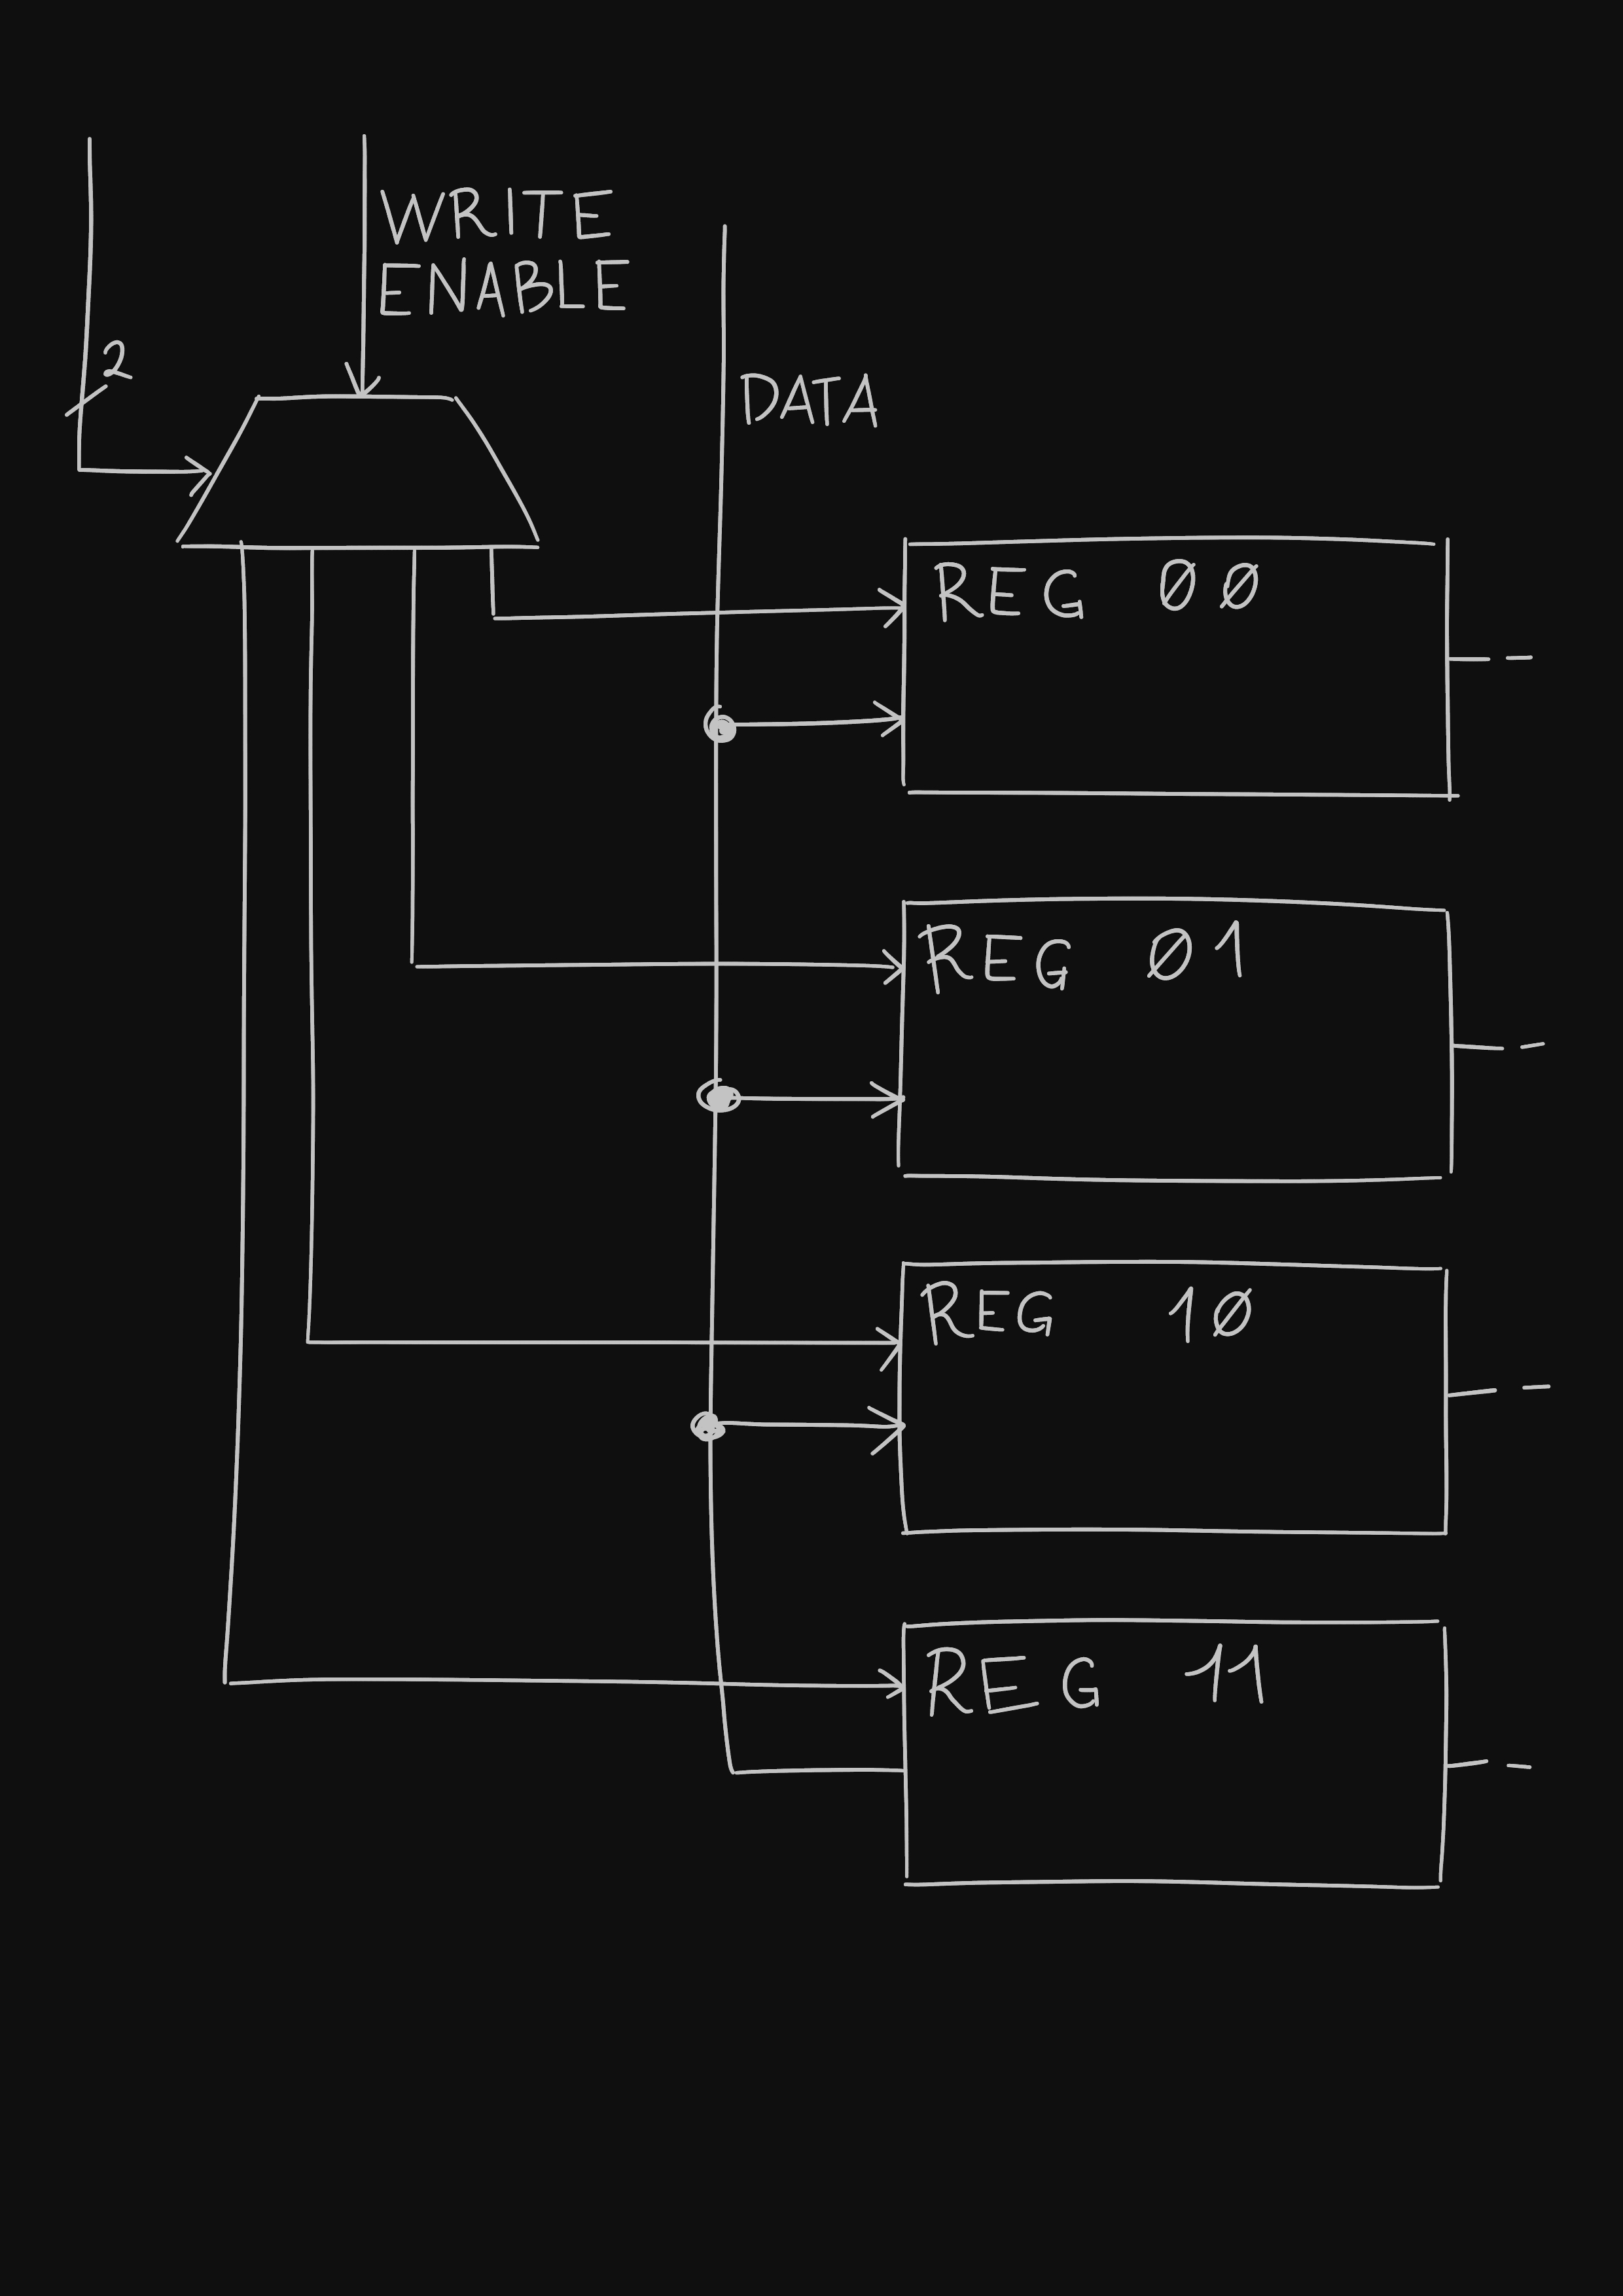 WRITE
ENABLE
2
DATA
REG 00
REG 01
REG 10
REG 11